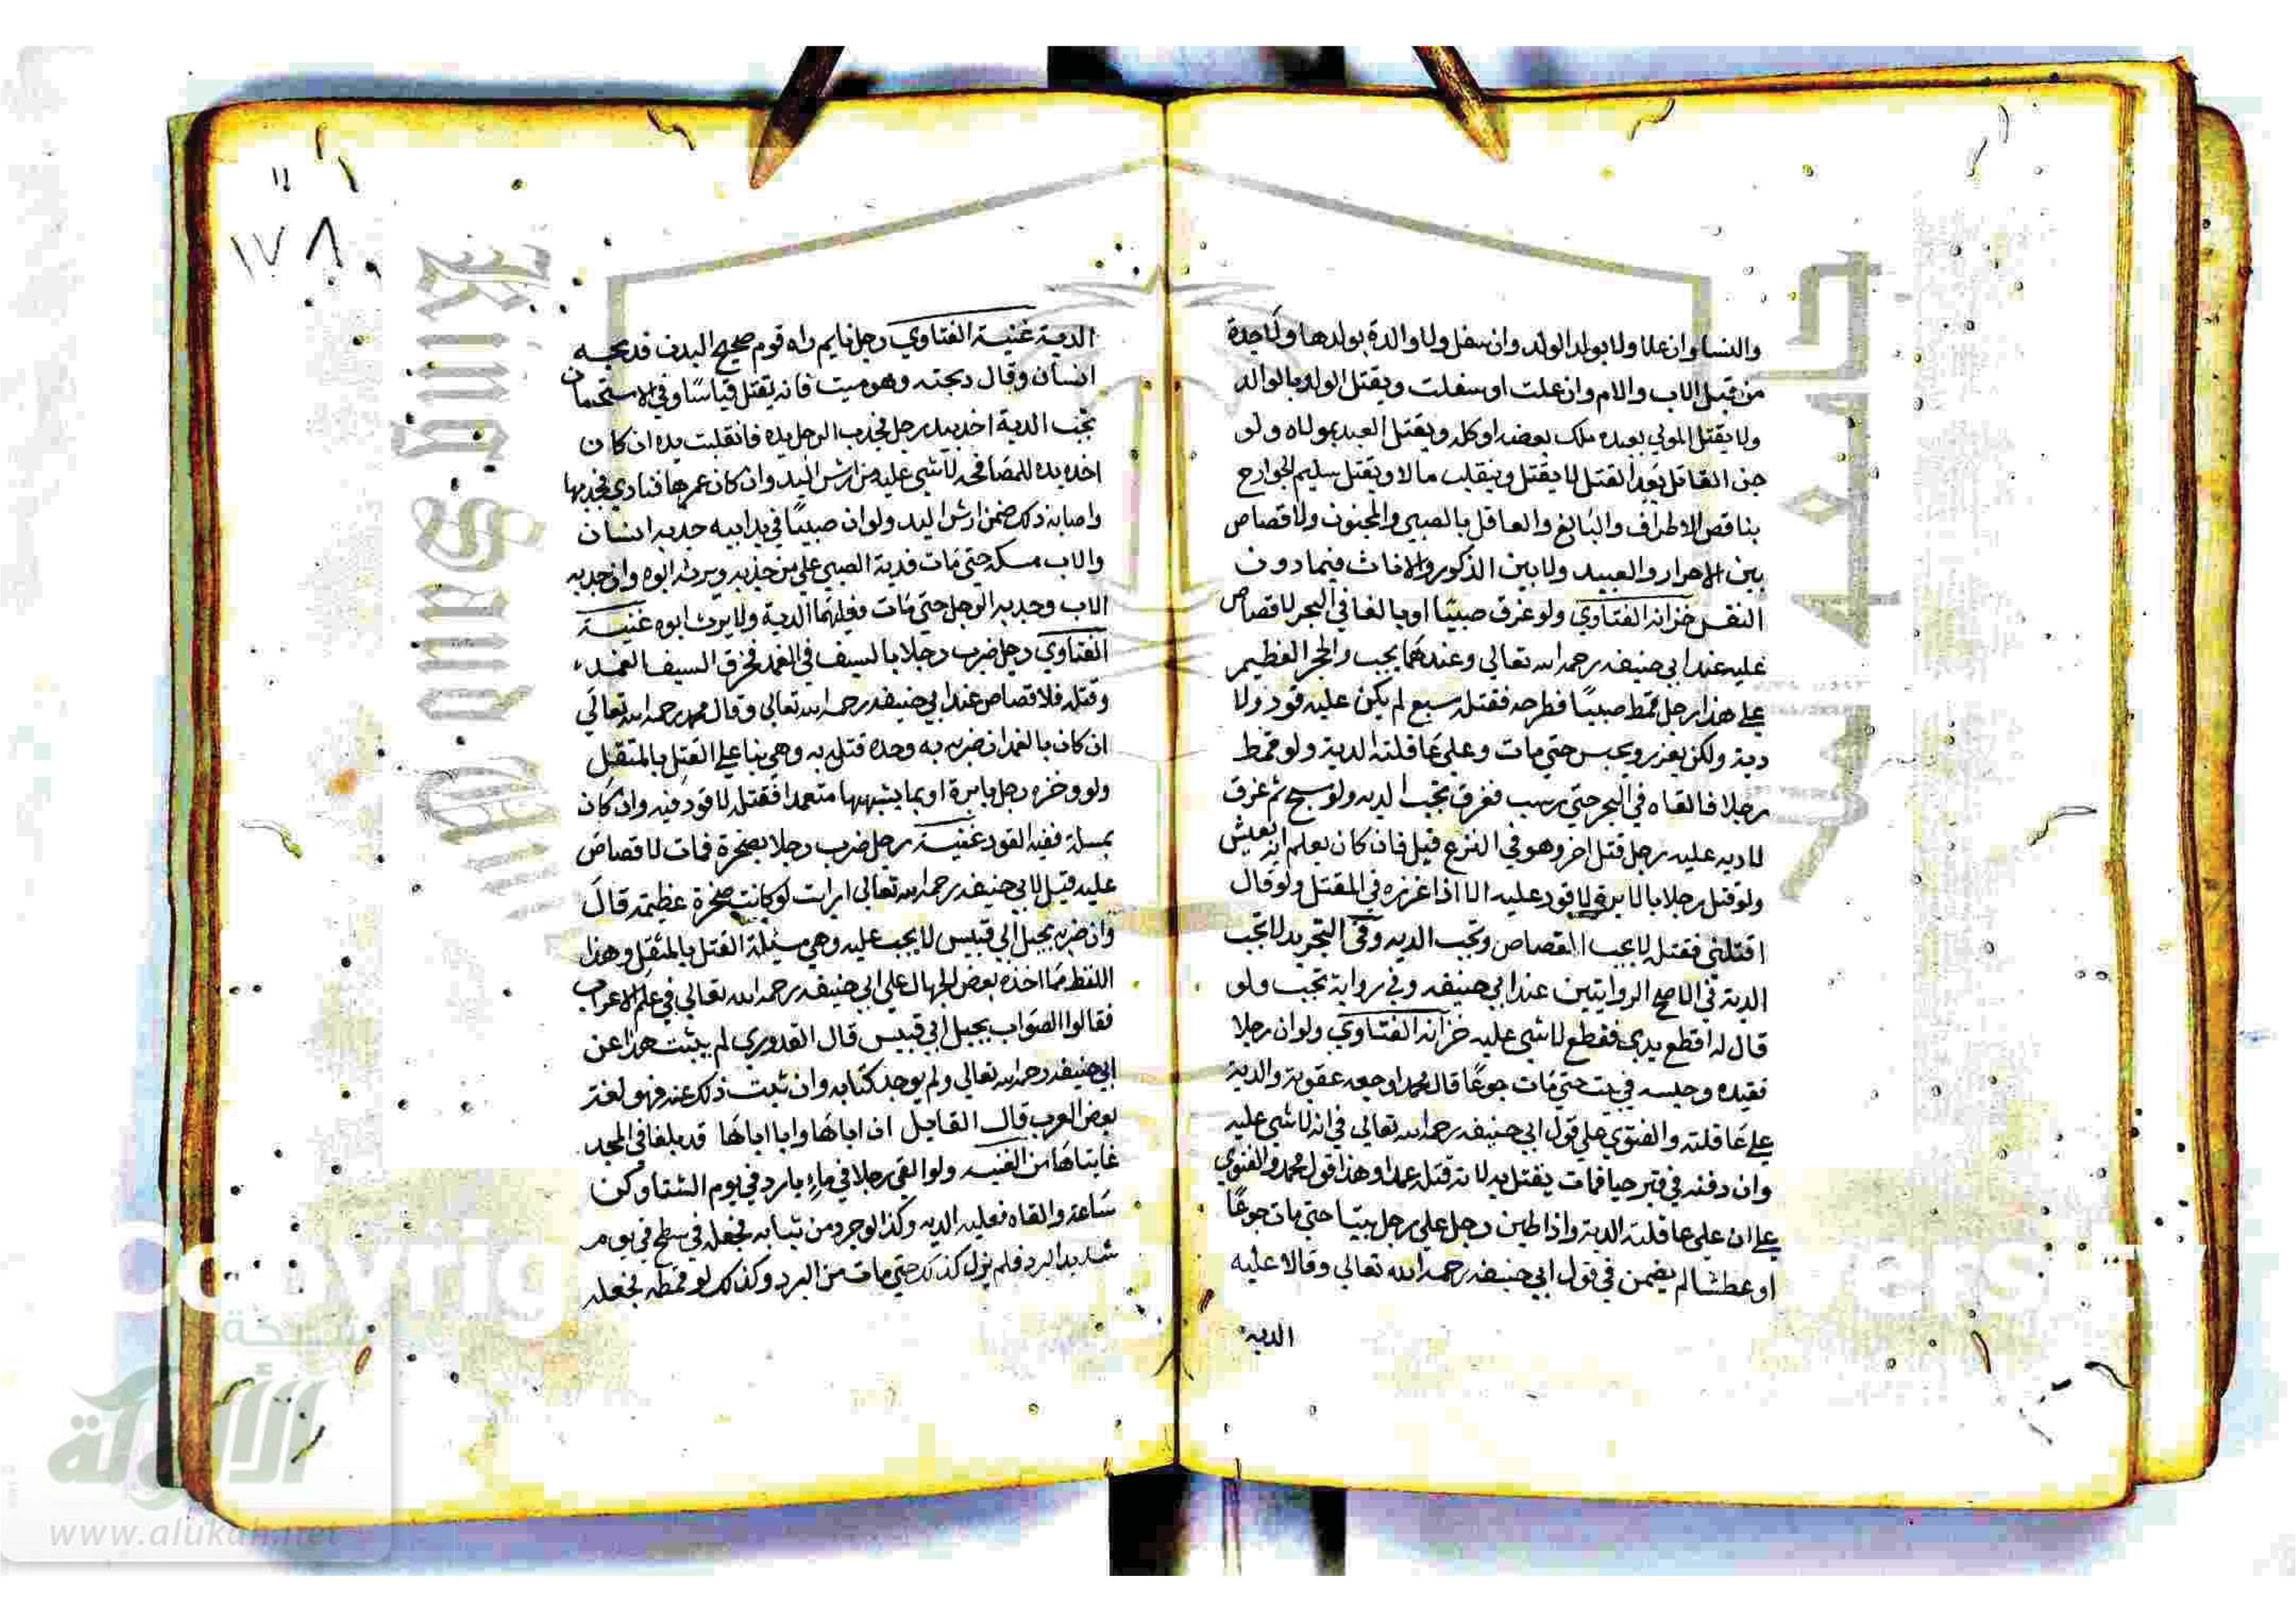 والنسا وان علا ولا بولد الولد وان سفل ولا والدة بولدها ولا جدة
من قبل الاب والام وان علت او سفلت ويقتل الولد بالوالد
ولا يقتل المولي بعبده ملك بعضه او كله ويقتل العبد بمولاه ولو
جن القاتل بعد القتل لا يقتل وينقلب مالا ويقتل سليم الجوارح
بناقص الاطراف والبالغ والعاقل بالصبي والمجنون ولا قصاص
بين الاحرار والعبيد ولا بين الذكور والاناث فيما دون
النفس خزانة الفتاوي ولو غرق صبيا او بالغا في البحر لا قصاص
عليه عند ابي حنيفه رحمه الله تعالي وعندهما يجب والحجر العظيم
علي هذا رجل قمط صبيا فطرحه فقتله سبع لم يكن عليه قود ولا
دية ولكن يعزر ويحبس حتي مات وعلي عاقلته الدية ولو قمط
رجلا فالقاه في البحر حتي رسب فغرق تجب الديه ولو سبح ثم غرق
لا ديه عليه رجل قتل اخر وهو في النزع قيل فان كان يعلم انه يعيش
ولو قتل رجلا بالابرة لا قود عليه الا اذا غرزه في المقتل ولو قال
اقتلني فقتله لا يجب القصاص وتجب الديه وفي التجريد لا تجب
الدية في الاصح الروايتين عند ابي حنيفه وفي رواية تجب ولو
قال له اقطع يدي فقطع لا شي عليه خزانة الفتاوي ولو ان رجلا
قيده وحبسه في بيت حتي مات جوعا قال محمد اوجعه عقوبة والدية
علي عاقلته والفتوي علي قول ابي حنيفه رحمه الله تعالي في انه لا شي عليه
وان دفنه في قبر حيا فمات يقتل به لانه قتله عمدا وهذا قول محمد والفتوي
علي ان علي عاقلته الدية واذا طين رجل علي رجل بيتا حتي مات جوعا
او عطشا لم يضمن في قول ابي حنيفه رحمه الله تعالي وقالا عليه
الديه
١١
١٧٨
الدية غنية الفتاوي رجل نايم راه قوم صحيح البدن فدبحه
انسان وقال دبحته وهو ميت فانه يقتل قياسا وفي الاستحسان
تجب الدية اخد بيد رجل فجذب الرجل يده فانقلبت يده ان كان
اخد يده للمصافحه لا شي عليه من ارش اليد وان كان غمزها فتادي فجدبها
واصابه ذلك ضمن ارش اليد ولو ان صبيا في يد ابيه جدبه انسان
والاب مسكه حتي مات فدية الصبي علي من جذبه ويرثه ابوه وان جدبه
الاب وجدبه الرجل حتي مات فعليهما الدية ولا يرث ابوه غنية
الفتاوي رجل ضرب رجلا بالسيف في الغمد فخرق السيف الغمد
وقتله فلا قصاص عند ابي حنيفه رحمه الله تعالي وقال محمد رحمه الله تعالي
ان كان بالغمد ان ضربه به وحده قتل به وهي بنا علي القتل بالمثقل
ولو وخزه رجل بابرة او بما يشبهها متعمدا فقتله لا قود فيه وان كان
بمسلة ففيه القود غنية رجل ضرب رجلا بصخرة فمات لا قصاص
عليه قيل لابي حنيفه رحمه الله تعالي ارايت لو كانت صخرة عظيمة قال
وان ضربه بجبل ابي قبيس لا يجب عليه وهي مسيلة القتل بالمثقل وهذا
اللفظ مما اخذه بعض الجهال علي ابي حنيفه رحمه الله تعالي في علم الاعراب
فقالوا الصواب بجبل ابي قبيس قال القدوري لم يثبت هذا عن
ابي حنيفه رحمه الله تعالي ولم يوجد كتابه وان ثبت ذلك عنه فهو لغة
بعض العرب قال القايل ان اباها وابا اباها قد بلغا في المجد
غايتاها من الغنيه ولو القي رجلا في ماء بارد في يوم الشتا وكن
ساعة والقاه فعليه الديه وكذا لو جرده من ثيابه فجعله في سطح في يوم
شديد البرد فلم يزل كذلك حتي مات من البرد وكذلك لو قمطه فجعله
شبكة
الألوكة
www.alukah.net